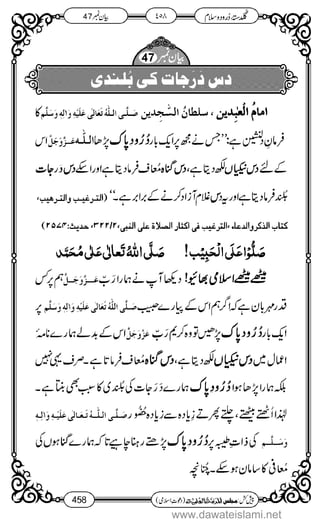 گلدستۂ درود و سلام ۴۵۸ بیان نمبر 47
بیان نمبر 47
دس دَرَجات کی بُلندی
امامُ الْعٰبِدِین ، سلطانُ السّٰجِدِین صَلَّی اللّٰہُ تَعَالٰی عَلَیْہِ وَاٰلِہٖ وَسَلَّم کا
فرمانِ دلنشین ہے : ’’جس نے مجھ پر ایک بار دُرُودِ پاک پڑھا اللّٰہ عَزَّوَجَلَّ اس
کے لئے دس نیکیاں لکھ دیتا ہے، دس گناہ مُعاف فرمادیتا ہے اور اسکے دس درجات
بُلند فرمادیتا ہے اور یہ دس غلام آزاد کرنے کے برابر ہے۔‘‘ (الترغیب والترھیب،
کتاب الذکر والدعاء، الترغیب فی اکثار الصلاۃ علی النبی، ۳۲۲/۲، حدیث: ۲۵۷۴)
صَلُّوْا عَلَی الْحَبِیْب! صَلَّی اللّٰہُ تَعَالٰی عَلٰی مُحَمَّد
میٹھے میٹھے اسلامی بھائیو! دیکھا آپ نے ہمارا ربّ عَزَّوَجَلَّ ہم پر کس
قدر مہربان ہے کہ اگر ہم اس کے پیارے حبیب صَلَّی اللّٰہُ تَعَالٰی عَلَیْہِ وَاٰلِہٖ وَسَلَّم پر
ایک بار دُرُودِ پاک پڑھیں تو وہ ربِّ کریم عَزَّوَجَلَّ اس کے بدلے ہمارے نامۂ
اعمال میں دس نیکیاں لکھ دیتا ہے، دس گناہ مُعاف فرماتا ہے۔ صرف یہی نہیں
بلکہ ہمارا پڑھا ہوا دُرُودِ پاک ہمارے دَرَجات کی بلندی کا سبب بھی بنتا ہے۔
لہٰذا اُٹھتے بیٹھتے، چلتے پھرتے زیادہ سے زیادہ حُضُور صَلَّی اللّٰہُ تَعَالٰی عَلَیْہِ وَاٰلِہٖ
وَسَلَّم کی ذاتِ طیبہ پر دُرُودِ پاک پڑھتے رہنا چاہیے تاکہ ہمارے گناہوں کی
مُعافی کا سامان ہوسکے۔ چُنانچہ
458 پیش کش: مجلس اَلْمَدِیْنَۃُ الْعِلْمِیَّۃ (دعوتِ اسلامی)
www.dawateislami.net